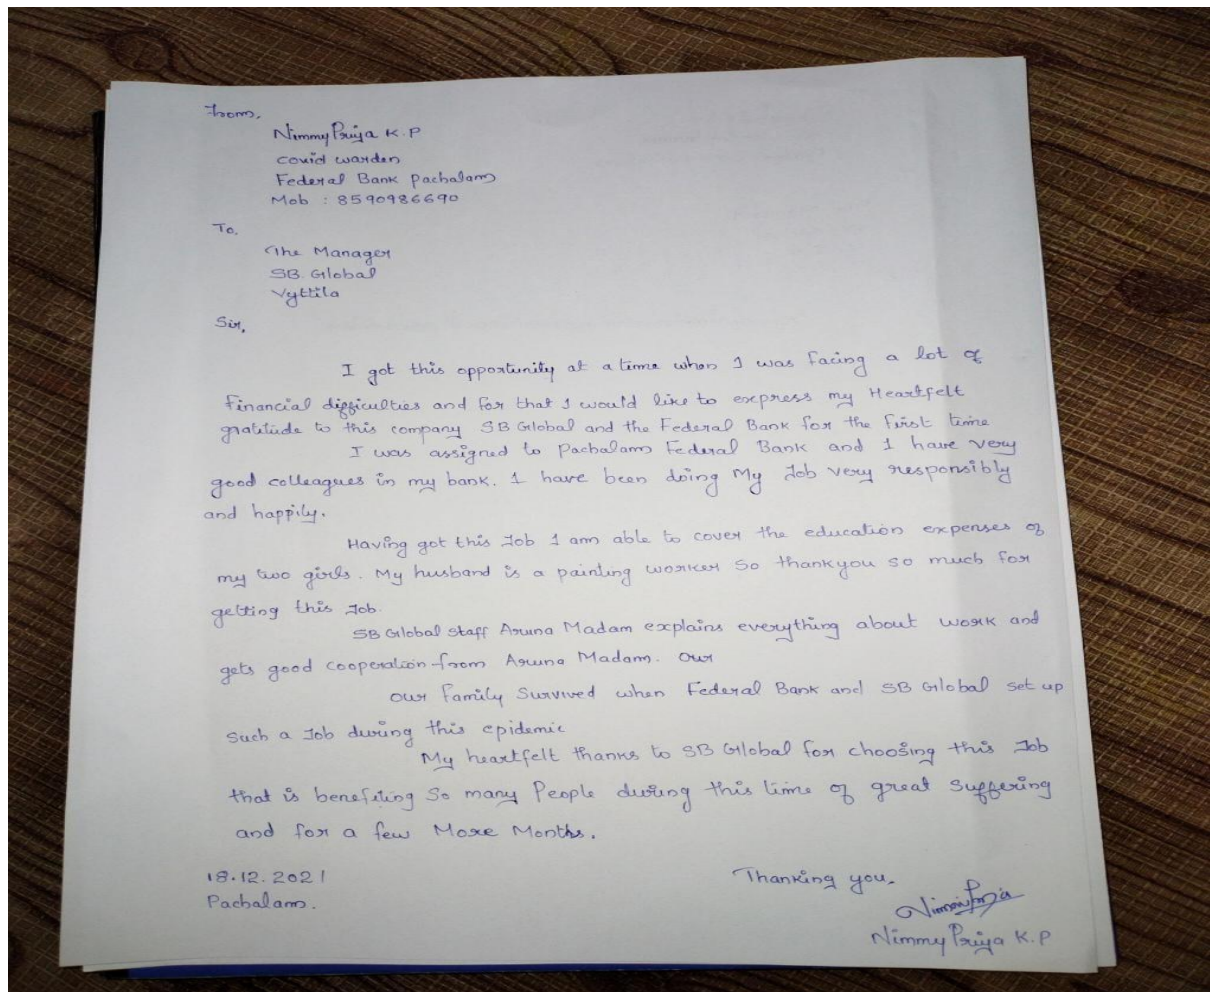 From,
Nimmy Priya K.P
covid warden
Federal Bank Pachalam
Mob : 8590986690
To,
The Manager
SB Global
Vyttila
Sir,
I got this opportunity at a time when I was facing a lot of
financial difficulties and for that I would like to express my Heartfelt
gratitude to this company SB Global and the Federal Bank for the first time
I was assigned to Pachalam Federal Bank and I have very
good colleagues in my bank. I have been doing My Job very responsibly
and happily.
Having got this Job I am able to cover the education expenses of
my two girls. My husband is a painting worker So thankyou so much for
getting this Job.
SB Global staff Aruna Madam explains everything about work and
gets good cooperation from Aruna Madam. Our
Our Family Survived when Federal Bank and SB Global set up
Such a Job during this epidemic
My heartfelt thanks to SB Global for choosing this Job
that is benefiting So many People during this time of great Suffering
and for a few More Months.
18.12.2021
Thanking you,
Pachalam.
Nimmy Priya
Nimmy Priya K.P